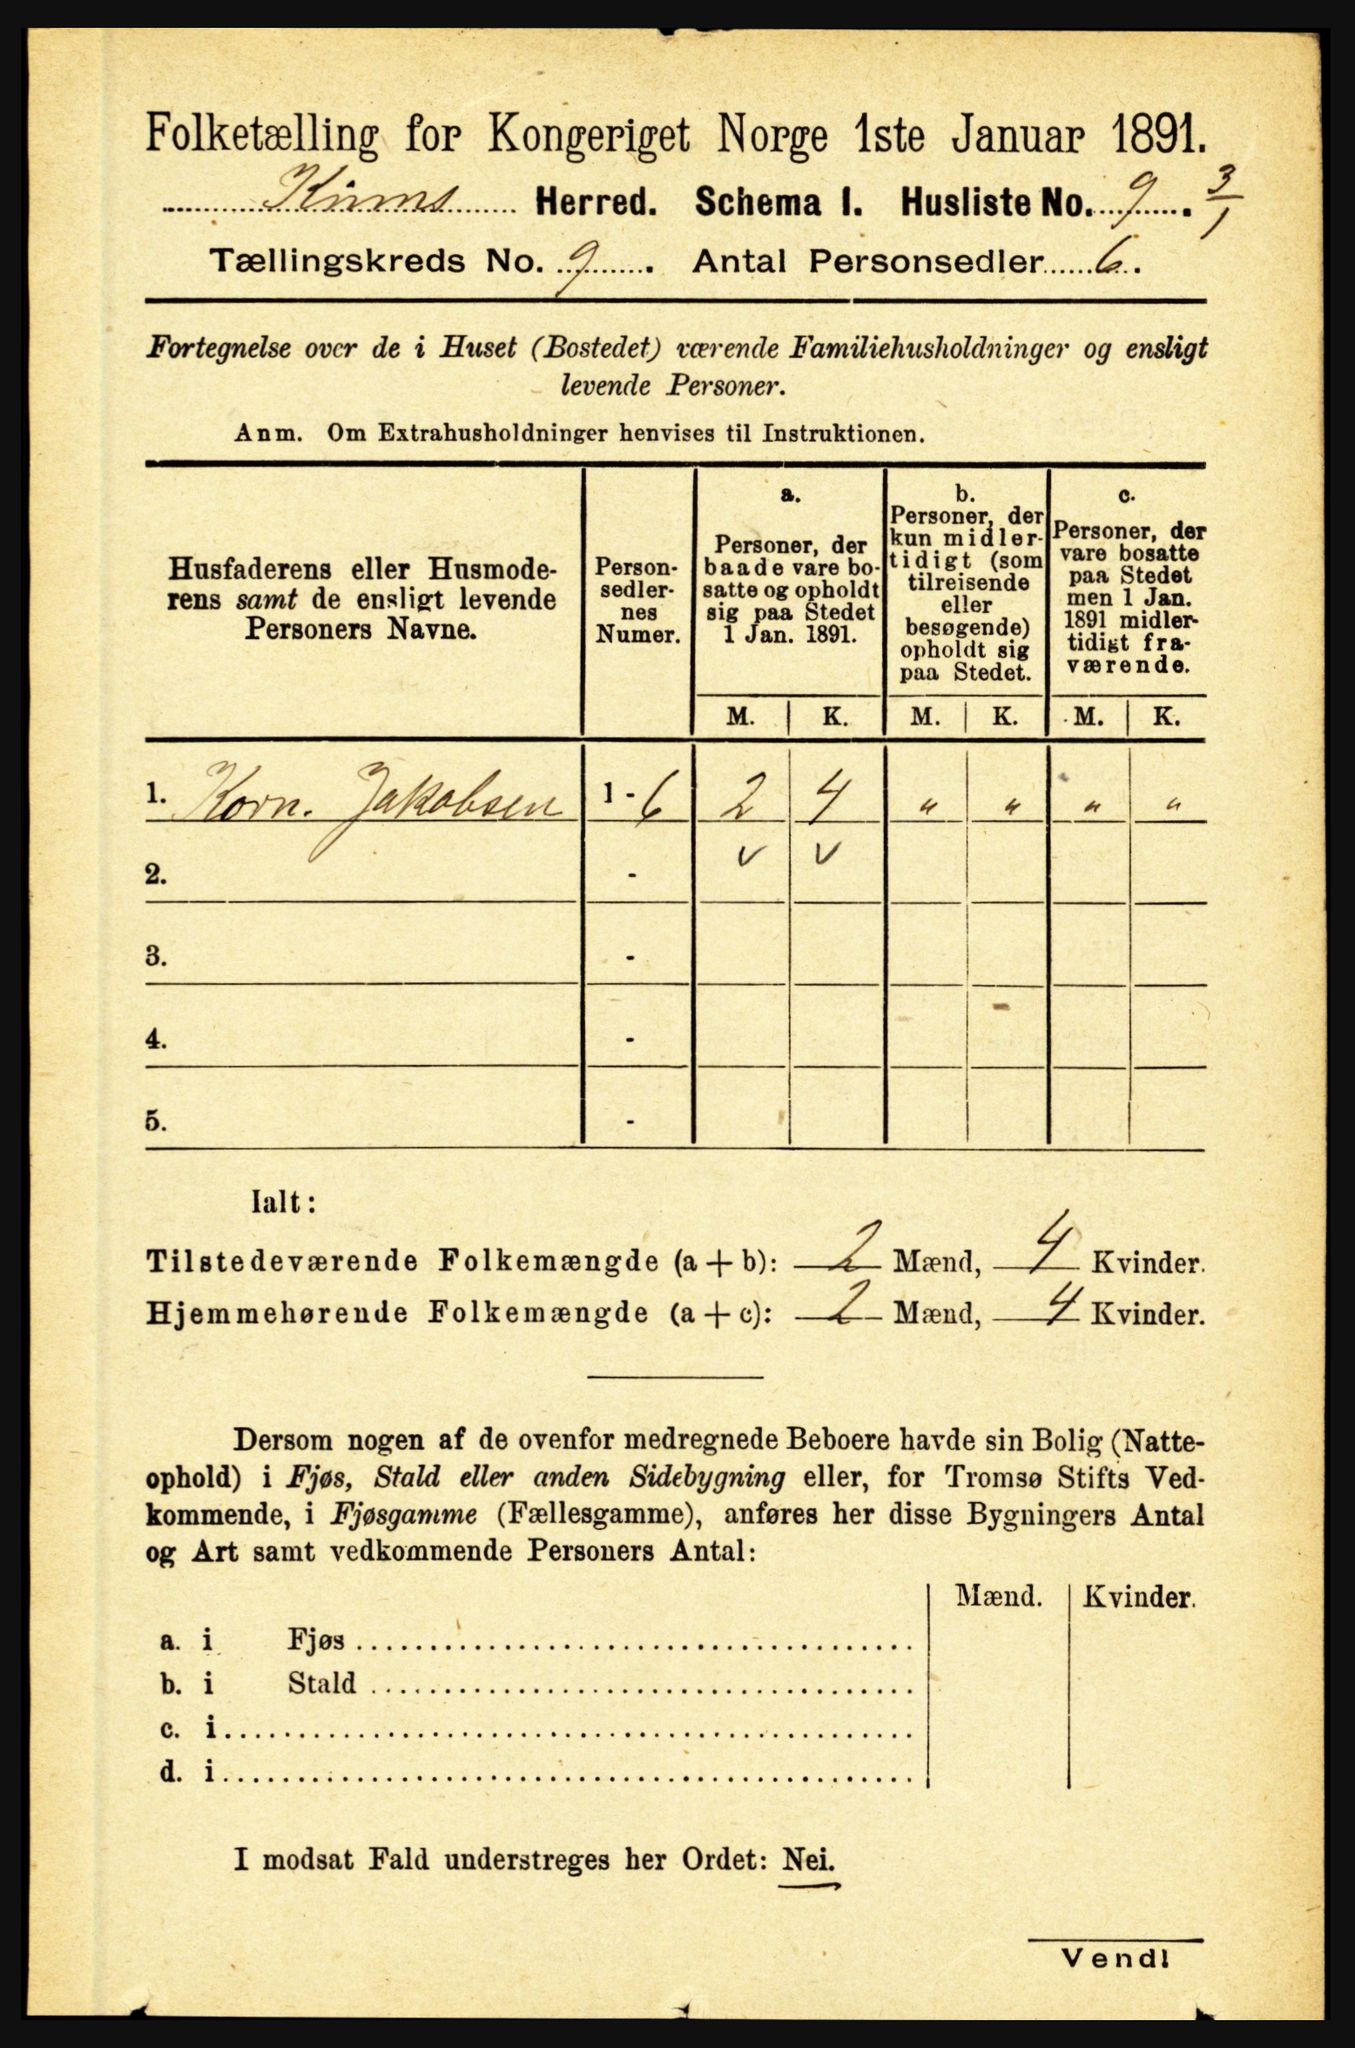 Folketælling for Kongeriget Norge 1ste Januar 1891.
Kinns Herred. Schema I. Husliste No. 9. 3/1
Tællingskreds No. 9. Antal Personsedler 6.
Fortegnelse over de i Huset (Bostedet) værende Familiehusholdninger og ensligt
levende Personer.
Anm. Om Extrahusholdninger henvises til Instruktionen.
Husfaderens eller Husmode-
rens samt de ensligt levende
Personers Navne.
Person-
sedler-
nes
Numer.
a.
Personer, der
baade vare bo-
satte og opholdt
sig paa Stedet
1 Jan. 1891.
b.
Personer, der
kun midler-
tidigt (som
tilreisende
eller
besøgende)
opholdt sig
paa Stedet.
c.
Personer, der
vare bosatte
paa Stedet
men 1 Jan.
1891 midler-
tidigt fra-
værende.
M. K. M. K. M. K.
1. Korn. Jakobsen 1 - 6 2 4 " " " "
2. - v v
3. -
4. -
5. -
Ialt:
Tilstedeværende Folkemængde (a + b): 2 Mænd, 4 Kvinder.
Hjemmehørende Folkemængde (a + c): 2 Mænd, 4 Kvinder.
Dersom nogen af de ovenfor medregnede Beboere havde sin Bolig (Natte-
ophold) i Fjøs, Stald eller anden Sidebygning eller, for Tromsø Stifts Ved-
kommende, i Fjøsgamme (Fællesgamme), anføres her disse Bygningers Antal
og Art samt vedkommende Personers Antal:
Mænd. Kvinder.
a. i Fjøs
b. i Stald
c. i
d. i
I modsat Fald understreges her Ordet: Nei.
Vend!